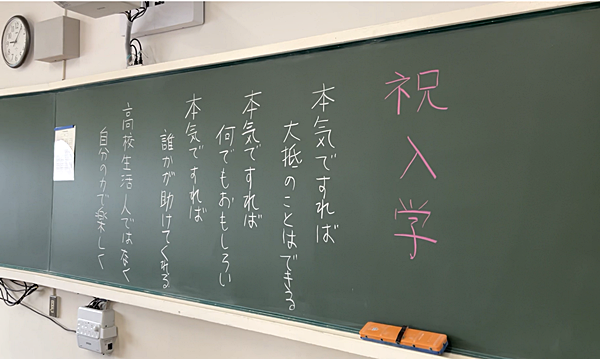 祝入学
本気ですれば
大抵のことはできる
本気ですれば
何でもおもしろい
本気ですれば
誰かが助けてくれる
高校生活人ではなく
自分の力で楽しく